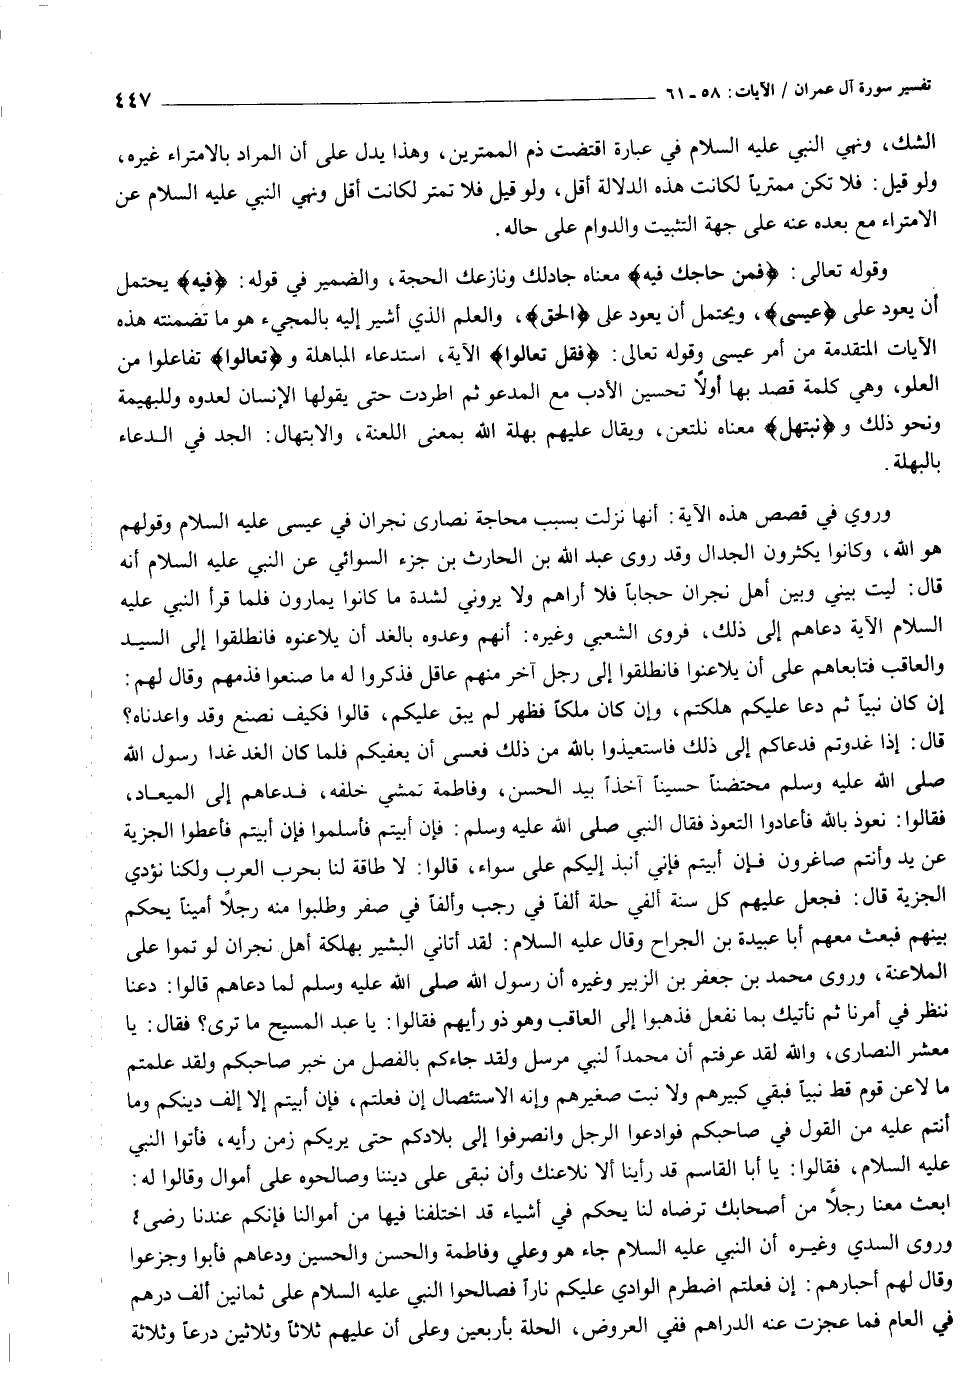 تفسير سورة آل عمران / الآيات: ٥٨ ـ ٦١ ٤٤٧
الشك، ونهي النبي عليه السلام في عبارة اقتضت ذم الممترين، وهذا يدل على أن المراد بالامتراء غيره،
ولو قيل: فلا تكن ممترياً لكانت هذه الدلالة أقل، ولو قيل فلا تمتر لكانت أقل ونهي النبي عليه السلام عن
الامتراء مع بعده عنه على جهة التثبيت والدوام على حاله.
وقوله تعالى: ﴿فمن حاجك فيه﴾ معناه جادلك ونازعك الحجة، والضمير في قوله: ﴿فيه﴾ يحتمل
أن يعود على ﴿عيسى﴾، ويحتمل أن يعود على ﴿الحق﴾، والعلم الذي أشير إليه بالمجيء هو ما تضمنته هذه
الآيات المتقدمة من أمر عيسى وقوله تعالى: ﴿فقل تعالوا﴾ الآية، استدعاء المباهلة و ﴿تعالوا﴾ تفاعلوا من
العلو، وهي كلمة قصد بها أولاً تحسين الأدب مع المدعو ثم اطردت حتى يقولها الإنسان لعدوه وللبهيمة
ونحو ذلك و ﴿نبتهل﴾ معناه نلتعن، ويقال عليهم بهلة الله بمعنى اللعنة، والابتهال: الجد في الدعاء
بالبهلة.
وروي في قصص هذه الآية: أنها نزلت بسبب محاجة نصارى نجران في عيسى عليه السلام وقولهم
هو الله، وكانوا يكثرون الجدال وقد روى عبد الله بن الحارث بن جزء السوائي عن النبي عليه السلام أنه
قال: ليت بيني وبين أهل نجران حجاباً فلا أراهم ولا يروني لشدة ما كانوا يمارون فلما قرأ النبي عليه
السلام الآية دعاهم إلى ذلك، فروى الشعبي وغيره: أنهم وعدوه بالغد أن يلاعنوه فانطلقوا إلى السيد
والعاقب فتابعاهم على أن يلاعنوا فانطلقوا إلى رجل آخر منهم عاقل فذكروا له ما صنعوا فذمهم وقال لهم:
إن كان نبياً ثم دعا عليكم هلكتم، وإن كان ملكاً فظهر لم يبق عليكم، قالوا فكيف نصنع وقد واعدناه؟
قال: إذا غدوتم فدعاكم إلى ذلك فاستعيذوا بالله من ذلك فعسى أن يعفيكم فلما كان الغد غدا رسول الله
صلى الله عليه وسلم محتضناً حسيناً آخذاً بيد الحسن، وفاطمة تمشي خلفه، فدعاهم إلى الميعاد،
فقالوا: نعوذ بالله فأعادوا التعوذ فقال النبي صلى الله عليه وسلم: فإن أبيتم فأسلموا فإن أبيتم فأعطوا الجزية
عن يد وأنتم صاغرون فإن أبيتم فإني أنبذ إليكم على سواء، قالوا: لا طاقة لنا بحرب العرب ولكنا نؤدي
الجزية قال: فجعل عليهم كل سنة ألفي حلة ألفاً في رجب وألفاً في صفر وطلبوا منه رجلاً أميناً يحكم
بينهم فبعث معهم أبا عبيدة بن الجراح وقال عليه السلام: لقد أتاني البشير بهلكة أهل نجران لو تموا على
الملاعنة، وروى محمد بن جعفر بن الزبير وغيره أن رسول الله صلى الله عليه وسلم لما دعاهم قالوا: دعنا
ننظر في أمرنا ثم نأتيك بما نفعل فذهبوا إلى العاقب وهو ذو رأيهم فقالوا: يا عبد المسيح ما ترى؟ فقال: يا
معشر النصارى، والله لقد عرفتم أن محمداً لنبي مرسل ولقد جاءكم بالفصل من خبر صاحبكم ولقد علمتم
ما لاعن قوم قط نبياً فبقي كبيرهم ولا نبت صغيرهم وإنه الاستئصال إن فعلتم، فإن أبيتم إلا إلف دينكم وما
أنتم عليه من القول في صاحبكم فوادعوا الرجل وانصرفوا إلى بلادكم حتى يريكم زمن رأيه، فأتوا النبي
عليه السلام، فقالوا: يا أبا القاسم قد رأينا ألا نلاعنك وأن نبقى على ديننا وصالحوه على أموال وقالوا له:
ابعث معنا رجلاً من أصحابك ترضاه لنا يحكم في أشياء قد اختلفنا فيها من أموالنا فإنكم عندنا رضى٤
وروى السدي وغيره أن النبي عليه السلام جاء هو وعلي وفاطمة والحسن والحسين ودعاهم فأبوا وجزعوا
وقال لهم أحبارهم: إن فعلتم اضطرم الوادي عليكم ناراً فصالحوا النبي عليه السلام على ثمانين ألف درهم
في العام فما عجزت عنه الدراهم ففي العروض، الحلة بأربعين وعلى أن عليهم ثلاثاً وثلاثين درعاً وثلاثة